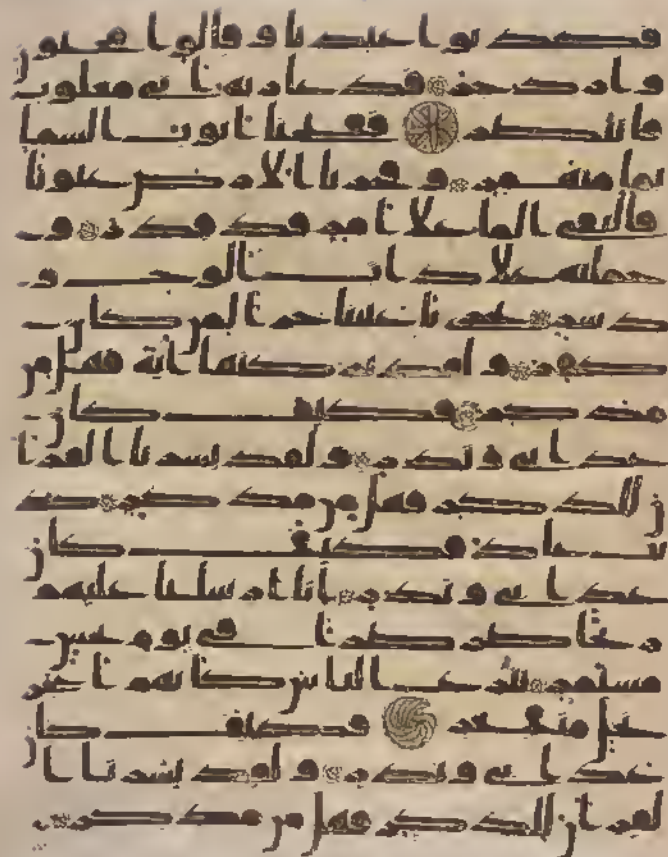 فكذبوا عبدنا وقالوا مجنون
وازدجر فدعا ربه اني مغلوب
فانتصر ففتحنا ابوب السما
بما منهمر وفجرنا الارض عيونا
فالتقى الما علا امر قد قدر و
حملنه علا ذات الوح و
دسر تجري باعيننا جزا لمن كان
كفر ولقد تركنها اية فهل من
مدكر فكيف كان
عذابي ونذر ولقد يسرنا القرا
ن للذكر فهل من مدكر كذبت
عاد فكيف كان
عذابي ونذر انا ارسلنا عليهم
ريحا صرصرا في يوم نحس
مستمر تنزع الناس كانهم اعجز
نخل منقعر فكيف كان
عذابي ونذر ولقد يسرنا ا
لقران للذكر فهل من مدكر